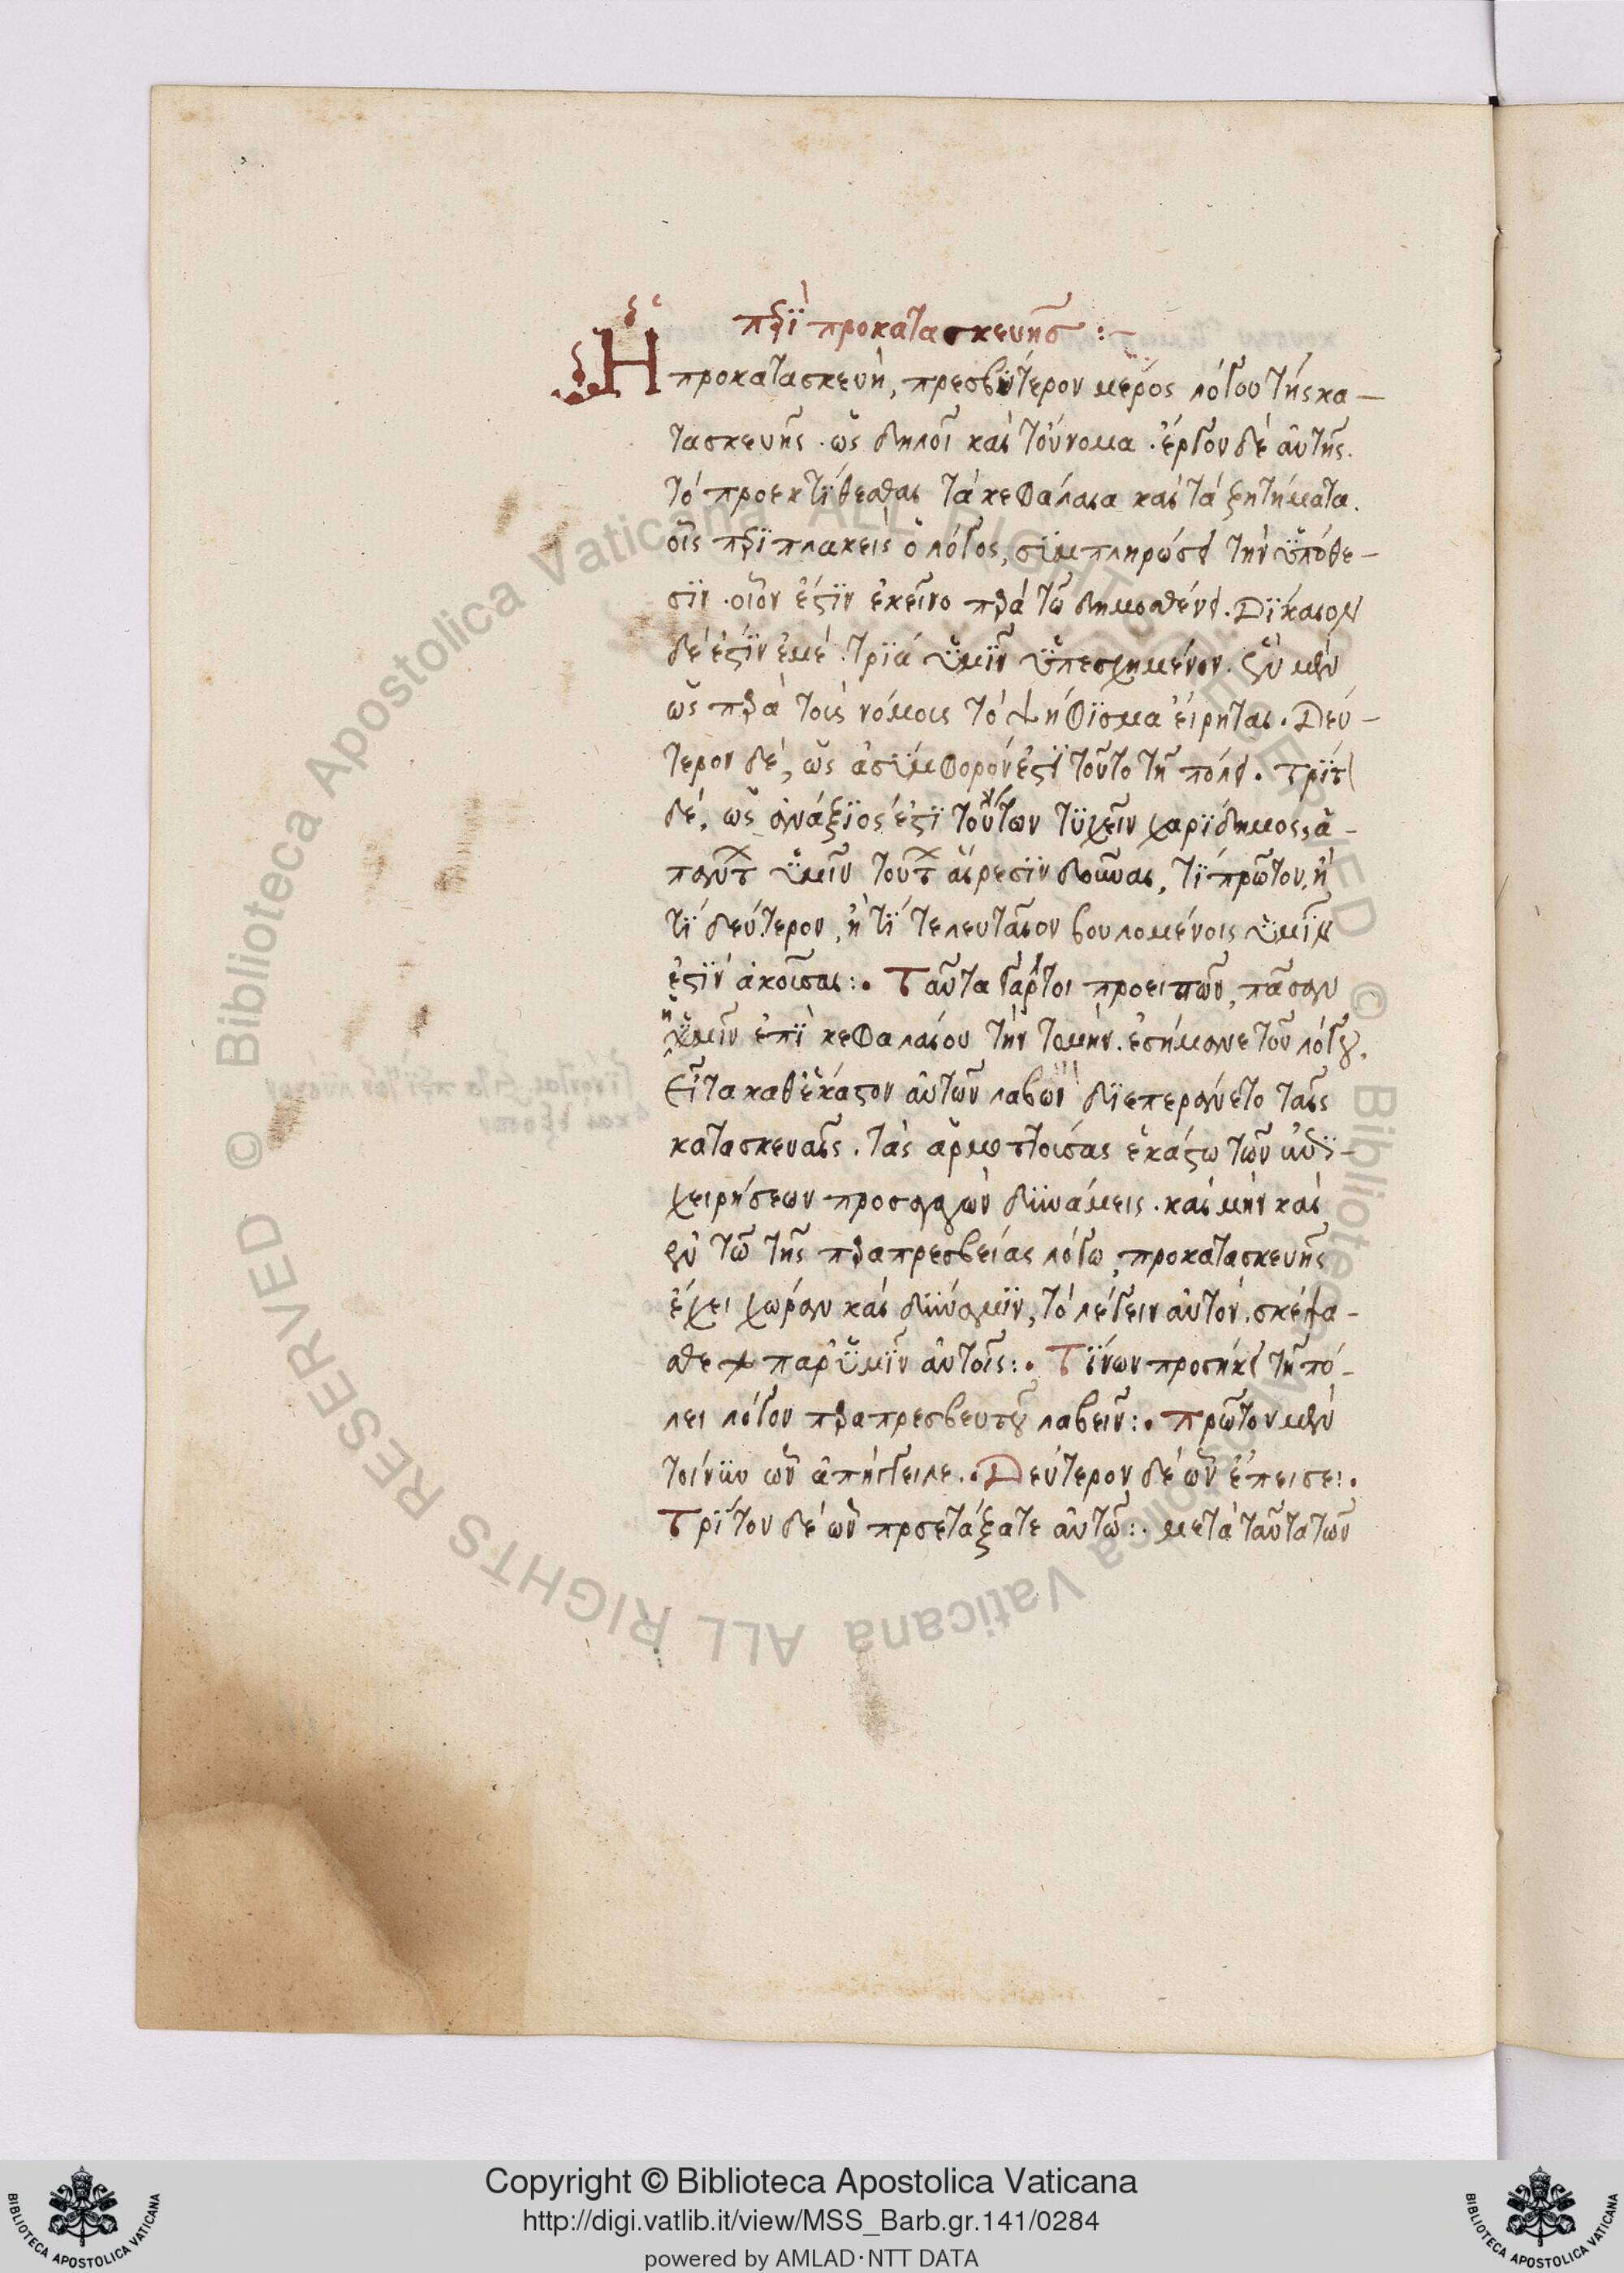 πρὶ προκατασκευῆς :–
Ἡ προκατασκευὴ, πρεσβύτερον μέρος λόγου τῆς κα–
τασκευῆς . ὡς δηλοῖ καὶ τοὔνομα . ἔργον δὲ αὐτῆς .
τὸ προεκτίθεσθαι τὰ κεφάλαια καὶ τὰ ζητήματα .
οἷς πρὶπλακεὶς ὁ λόγος, σϊμπληρώσει τὴν ὑπόθε–
σϊν . οἷον ἐστὶν ἐκεῖνο πρὰ τῶ δημοσθένει . Δίκαιον
δὲ ἐστὶν ἐμὲ . τρία ὑμῖν ὑπεσχημένον . ἓν μὲν
ὡς πρὰ τοὺς νόμοις τὸ ψήφισμα εἴρηται . Δεύ–
τερον δὲ, ὡς ἀσύμφορόν ἐστὶ τοῦτο τῆ πόλει . τρίτ
δὲ, ὡς ἀνάξιός ἐστὶ τούτων τυχεῖν χαρίδημος, ἁ–
πάντ ὑμῖν τοῦτ αἵρεσιν δοῦναι, τί πρῶτον, ἢ
τί δεύτερον, ἢ τί τελευταῖον βουλομένοις ὑμῖν
ἐστὶν ἀκοῦσαι :. Ταῦτα γάρ τοι προειπὼν, πᾶσαν
ἡμῖν ἐπὶ κεφαλαίου τὴν τομὴν . ἐσήμανε τοῦ λόγου .
Εἶτα καθ' ἕκαστον αὐτῶν λαβὼν διεπεραίνετο ταῖς
κατασκευαῖς . τὰς ἁρμοττούσας ἑκάστω τῶν
χειρήσεων προσάγων δυνάμεις . καὶ μὴν καὶ
ἐν τῶ τῆς πραπρεσβείας λόγω, προκατασκευῆς
ἔχει χώραν καὶ δύναμιν, τὸ λέγειν αὐτὸν, σκέψα–
σθε παρ' ὑμῖν αὐτοῖς :. Τίνων προσήκει τῆ πό–
λει λόγον πραπρεσβευτοῦ λαβεῖν :. πρῶτον μὲν
τοίνυν ὧν ἀπήγγειλε .. Δεύτερον δὲ ὧν ἔπεισε :.
Τρίτον δὲ ὧν προσετάξατε αὐτῶ :. μετὰ ταῦτα τῶν
Copyright © Biblioteca Apostolica Vaticana
http://digi.vatlib.it/view/MSS_Barb.gr.141/0284
powered by AMLAD·NTT DATA
BIBLIOTECA APOSTOLICA VATICANA
BIBLIOTECA APOSTOLICA VATICANA
© Biblioteca Apostolica Vaticana ALL RIGHTS RESERVED © Biblioteca Apostolica Vaticana ALL RIGHTS RESERVED